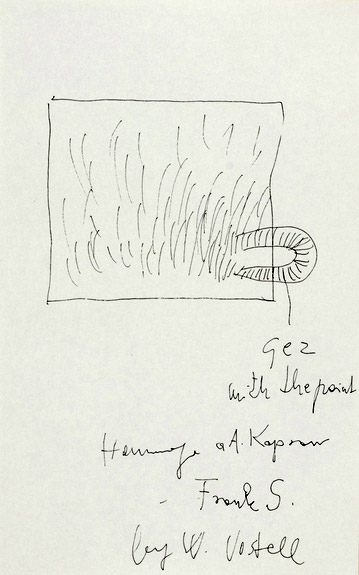 gez
with the point
Hommage a A. Kaprow
- Frank S.
by W. Vostell